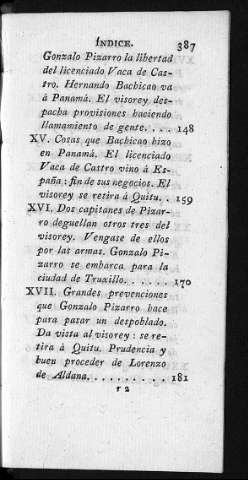 ÍNDICE. 387
Gonzalo Pizarro la libertad
del licenciado Vaca de Cas-
tro. Hernando Bachicao va
á Panamá. El visorey des-
pacha provisiones haciendo
llamamiento de gente. . . . 148
XV. Cosas que Bachicao hizo
en Panamá. El licenciado
Vaca de Castro vino á Es-
paña: fin de sus negocios. El
visorey se retira á Quitu. . 159
XVI. Dos capitanes de Pizar-
ro deguellan otros tres del
visorey. Vengase de ellos
por las armas. Gonzalo Pi-
zarro se embarca para la
ciudad de Truxillo. . . . . . 170
XVII. Grandes prevenciones
que Gonzalo Pizarro hace
para pasar un despoblado.
Da vista al visorey: se re-
tira á Quitu. Prudencia y
buen proceder de Lorenzo
de Aldana. . . . . . . . . . 181
r 2